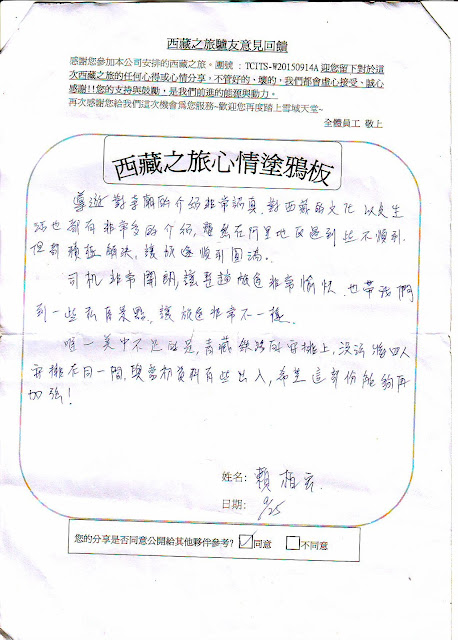 西藏之旅驢友意見回饋
感謝您參加本公司安排的西藏之旅。團號：TCITS-W20150914A 迎您留下對於這
次西藏之旅的任何心得或心情分享，不管好的、壞的，我們都會虛心接受、誠心
感謝!!您的支持與鼓勵，是我們前進的能源與動力。
再次感謝您給我們這次機會為您服務~歡迎您再度踏上雪域天堂~
全體員工 敬上
西藏之旅心情塗鴉板
導遊對寺廟的介紹非常認真，對西藏的文化以及生
活也都有非常多的介紹，雖然在阿里地區遇到些不順利，
但都積極解決，讓旅途順利圓滿。
司机非常開朗，讓整趟旅途非常愉快，也帶我們
到一些私房景點，讓旅途非常不一樣。
唯一美中不足的是，青藏鐵路的安排上，沒法將四人
安排在同一間，與當初資料有些出入，希望這部份能夠再
加強！
姓名: 賴柏
日期: 9/25
您的分享是否同意公開給其他夥伴參考? ☑同意 □不同意